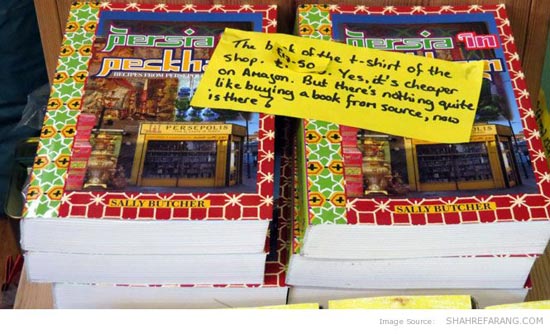 Persia
Peckham
RECIPES FROM PERSEPOLIS
PERSEPOLIS
SALLY BUTCHER
The book of the t-shirt of the
shop. Yes, it's cheaper
on Amazon. But there's nothing quite
like buying a book from source, now
is there?
Persia in
PERSEPOLIS
SALLY BUTCHER
Image Source: SHAHREFARANG.COM